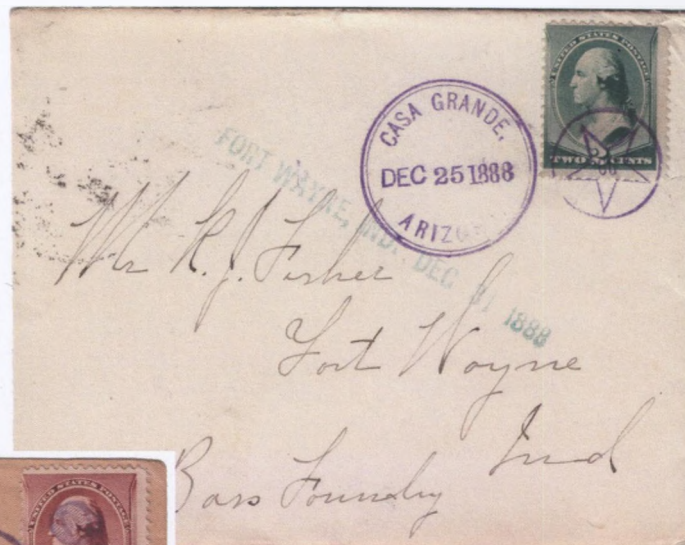 UNITED STATES POSTAGE
TWO CENTS
CASA GRANDE,
DEC 25 1888
ARIZO
FORT WAYNE, IND. DEC 31 1888
Mr R. J. Fisher
Fort Wayne
Ind
Bass Foundry
UNITED STATES POSTAGE